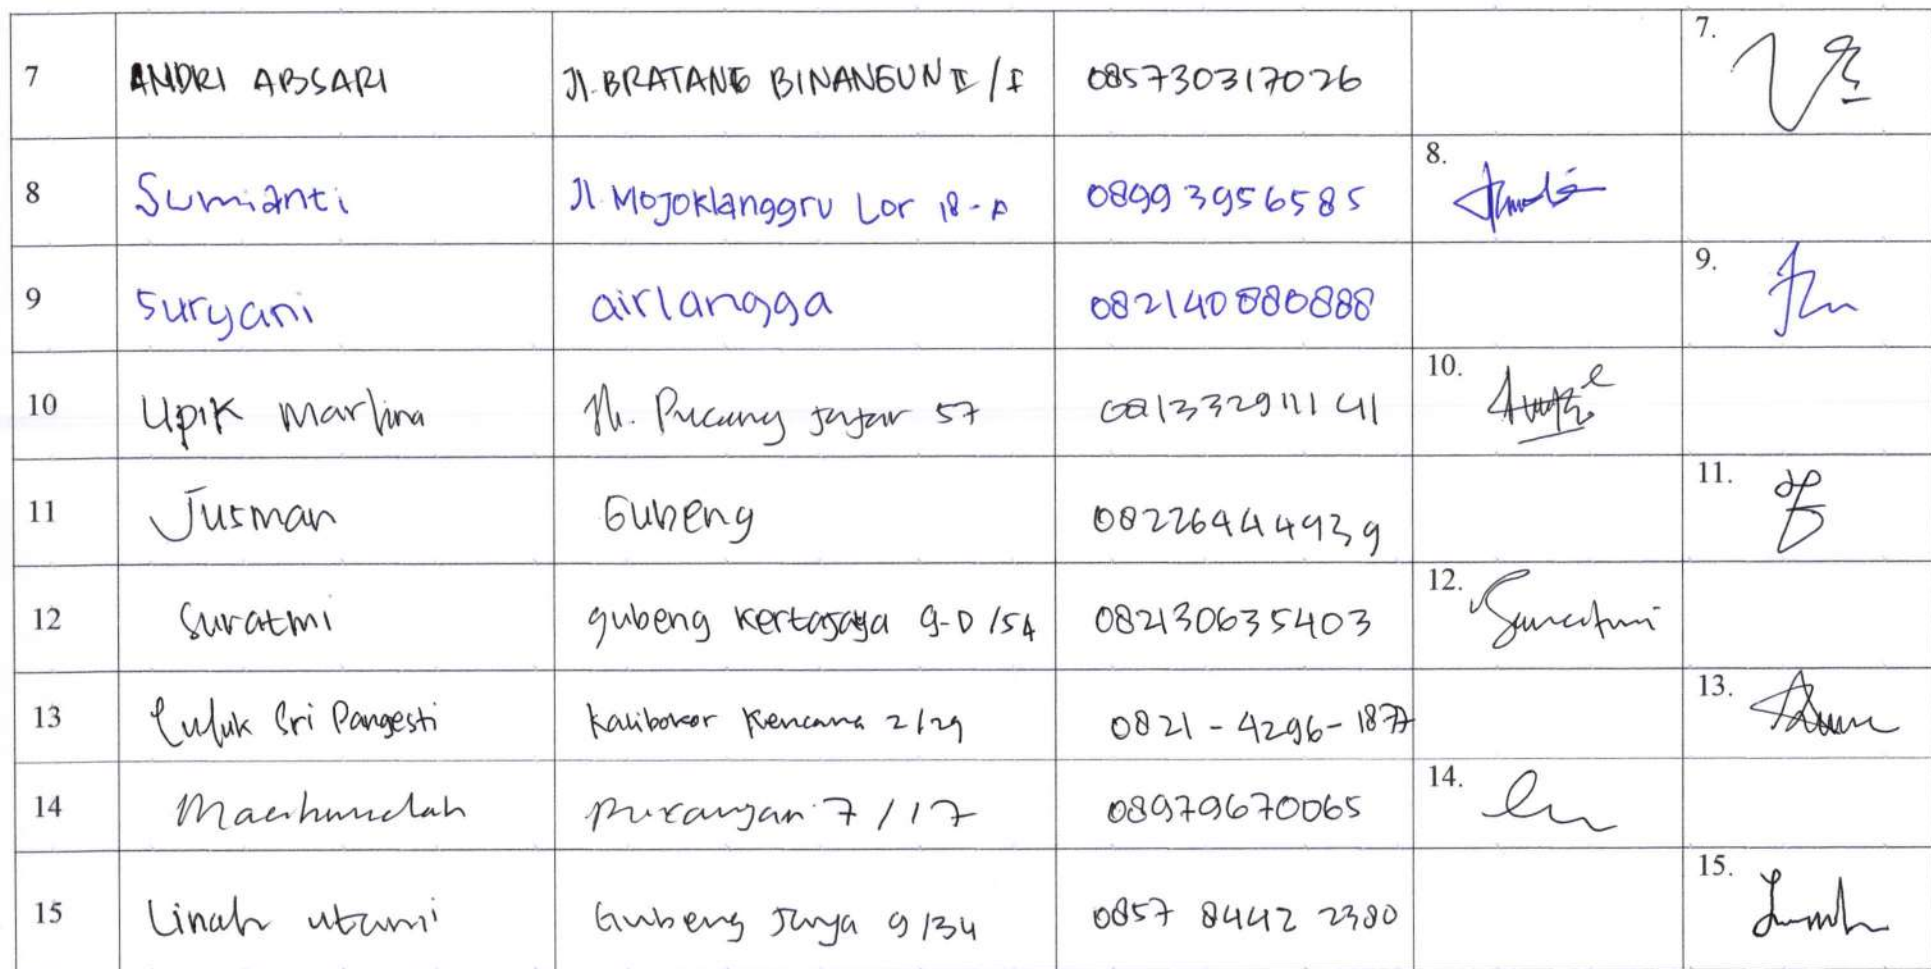 7 ANDRI ABSARI Jl. BRATANG BINANGUN II / I 085730317026 7.
8 Sumianti Jl. Mojoklanggru Lor 18-A 08993956585 8.
9 Suryani airlangga 082140880888 9.
10 Upik Marlina Jl. Pucang jajar 57 081332911141 10.
11 Jusman Gubeng 082264444939 11.
12 Suratmi gubeng kertajaya 9-D /54 082130635403 12. Suratmi
13 Luluk Sri Pangesti Kalibokor Kencana 2/29 0821-4296-1877 13.
14 7 / 17 08979670065 14.
15 Linah utami Gubeng Jaya 9/34 0857 8442 2380 15.